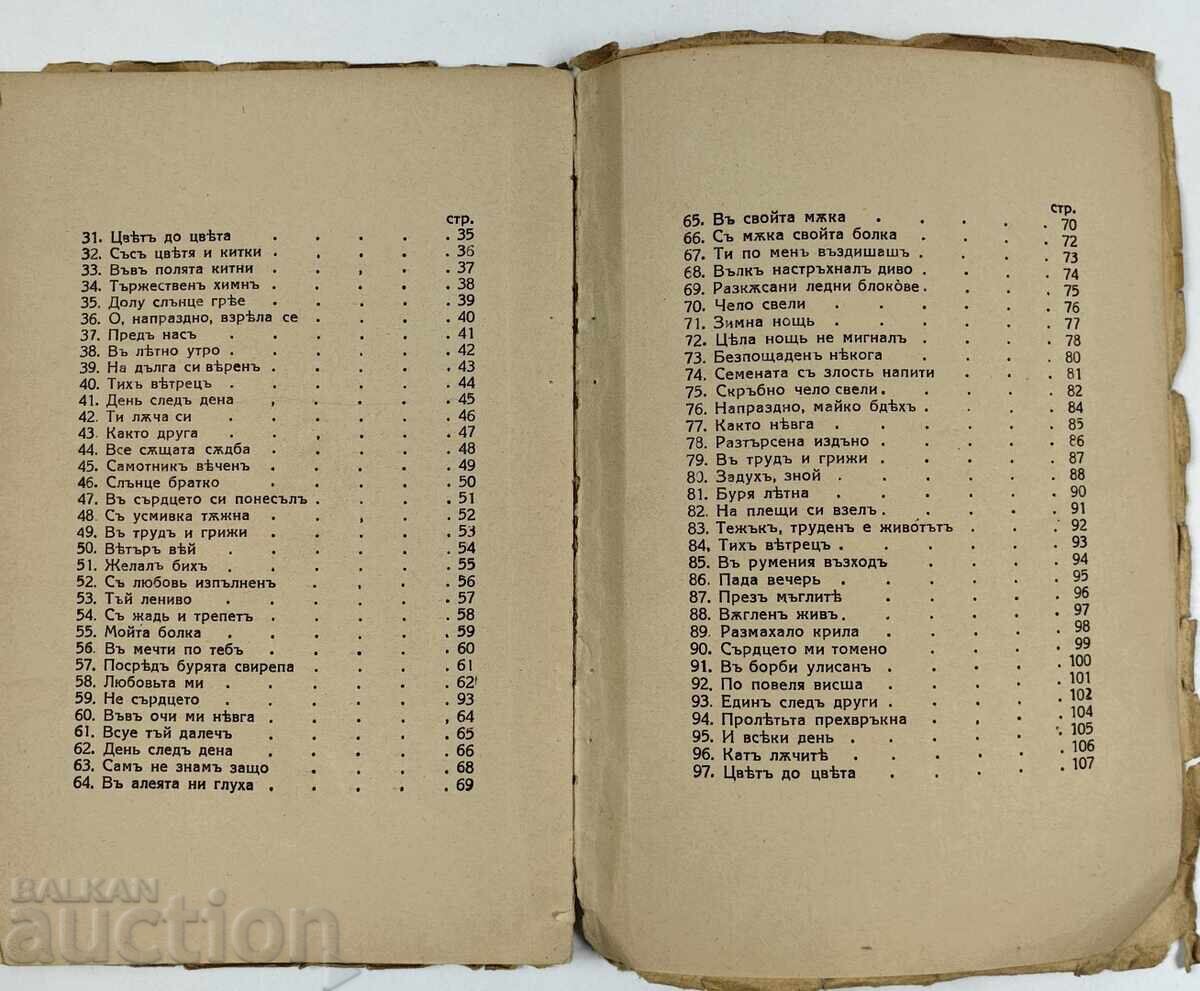 стр.
31. Цвѣтъ до цвѣта . . . . . 35
32. Със цвѣтя и китки . . . . . 36
33. Във полята китни . . , . . 37
34. Тържественъ химнъ . . . . . 38
35. Долу слънце грѣе . . . . . 39
36. О, напраздно, взрѣла се . . . . 40
37. Предъ насъ . . . . . . 41
38. Въ лѣтно утро . . . . . . 42
39. На дълга си вѣренъ . . . . . 43
40. Тихъ вѣтрецъ . . . . . . 44
41. День следъ дена , . . . . 45
42. Ти лѫча си . . . . . . 46
43. Както друга . . , . . . 47
44. Все сѫщата сѫдба . . . . . 48
45. Самотникъ вѣченъ . . . . . 49
46. Слънце братко . . . . . 50
47. Въ сърдцето си понесълъ . . . . 51
48. Съ усмивка тѫжна . . , . . 52
49. Въ трудъ и грижи . . . . . 53
50. Вѣтъръ вѣй . . . . . . 54
51. Желалъ бихъ . . . . . . 55
52. Съ любовь изпълненъ . , . . 56
53. Тъй лениво . . . . . . 57
54. Съ жадь и трепетъ . . . . . 58
55. Мойта болка . . . . . . 59
56. Въ мечти по тебъ . . . . . 60
57. Посрѣдъ бурята свирепа . . . . 61
58. Любовьта ми . . . . . . 62
59. Не сърдцето . . . . . . 93
60. Във очи ми нѣвга . . . . , 64
61. Всуе тъй далечъ . . . . . 65
62. День следъ дена . . . . . 66
63. Самъ не знамъ защо . . . . 68
64. Въ алеята ни глуха . . . . . 69
стр.
65. Въ свойта мѫка . . . . . 70
66. Съ мѫка свойта болка . . . . 72
67. Ти по менъ въздишашъ . . . . 73
68. Вълкъ настръхналъ диво . . . . 74
69. Разкѫсани ледни блокове . . . . 75
70. Чело свели . . . . . . 76
71. Зимна нощь . . . . . . 77
72. Цѣла нощь не мигналъ . . . . 78
73. Безпощаденъ нѣкога . . . . 80
74. Семената съ злость напити . . . 81
75. Скръбно чело свели . . . . . 82
76. Напраздно, майко бдѣхъ . . . . 84
77. Както нѣвга . . . . . . 85
78. Разтърсена издъно . . . . . 86
79. Въ трудъ и грижи . . . . . 87
80. Задухъ, зной . . . . . . 88
81. Буря лѣтна . . . . . . 90
82. На плещи си взелъ . . . . . 91
83. Тежъкъ, труденъ е животътъ . . . 92
84, Тихъ вѣтрецъ . . . . . . 93
85. Въ румения възходъ . . . . 94
86. Пада вечерь . . . . . . 95
87. Презъ мъглитѣ . . . . . 96
88. Вѫгленъ живъ . . . . . . 97
89. Размахало крила . . . . . 98
90. Сърдцето ми томено . . . . 99
91. Въ борби улисанъ . . . . . 100
92. По повеля висша . . . . . 101
93. Единъ следъ други . . . . . 102
94. Пролѣтьта прехвръкна . , . . 104
95. И всѣки день . . . . . . 105
96. Катъ лѫчитѣ . . . . . 106
97. Цвѣтъ до цвѣта . . . . . 107
BALKAN
auction